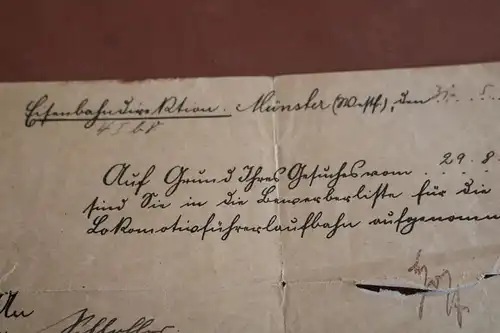 Eisenbahndirektion. Münster (Westf), den 31. 5.
4 I b P
Auf Grund Ihres Gesuches vom 29. 8.
sind Sie in die Bewerberliste für die
Lokomotivführerlaufbahn aufgenom
An